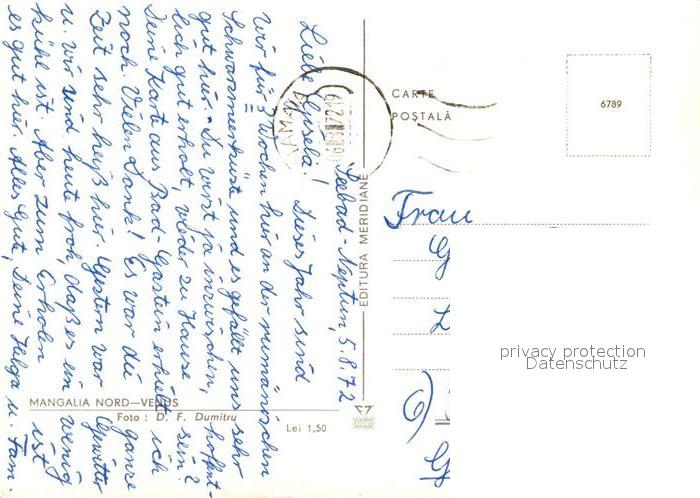 Seebad-Neptun, 5.8.72
Liebe Elfriede! Dieses Jahr sind
wir für 3 Wochen hier an der rumänischen
Schwarzmeerküste und es gefällt uns sehr
gut hier. Du wirst ja inzwischen, hoffent-
lich gut erholt, wieder zu Hause sein?
Deine Kart aus Bad-Gastein erhielt ich
noch. Vielen Dank! Es war die ganze
Zeit sehr heiß hier. Gestern war Gewitter
u. wir sind heute froh, daß es ein wenig
kühl ist. Aber zum Erholen ist
es gut hier. Alles Gut, Deine Helga u. Fam.
MANGALIA NORD—VENUS
Foto : D. F. Dumitru
Lei 1,50
EDITURA MERIDIANE
CARTE
POȘTALĂ
6789
Frau
privacy protection
Datenschutz